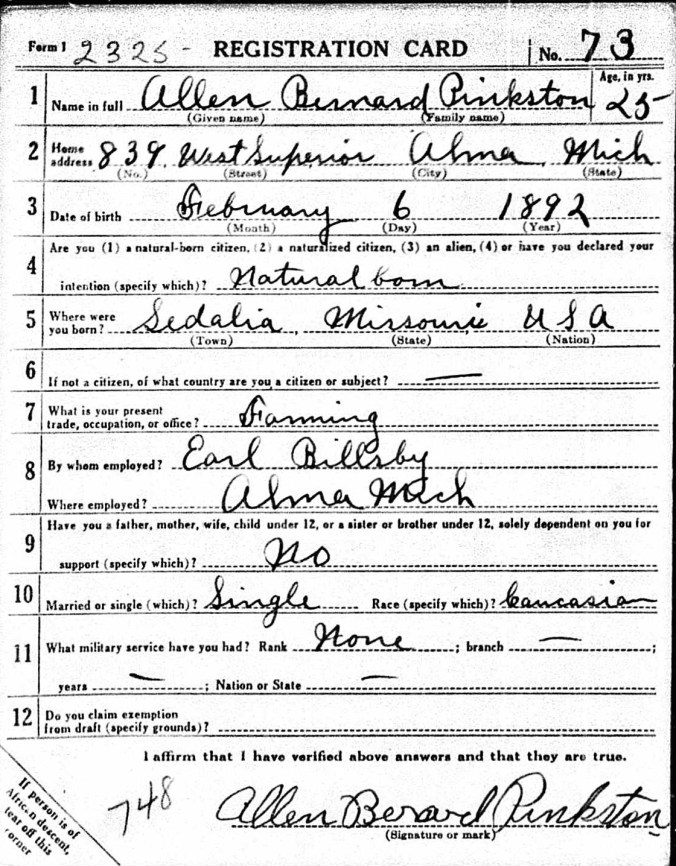 Form 1 2325- REGISTRATION CARD No. 73
1 Name in full Allen Bernard Pinkston Age, in yrs. 25
(Given name) (Family name)
2 Home address 839 West Superior Alma Mich
(No.) (Street) (City) (State)
3 Date of birth February 6 1892
(Month) (Day) (Year)
4 Are you (1) a natural-born citizen, (2) a naturalized citizen, (3) an alien, (4) or have you declared your
intention (specify which)? Natural born
5 Where were you born? Sedalia, Missouri USA
(Town) (State) (Nation)
6 If not a citizen, of what country are you a citizen or subject? —
7 What is your present trade, occupation, or office? Farming
8 By whom employed? Earl Billsby
Where employed? Alma Mich
9 Have you a father, mother, wife, child under 12, or a sister or brother under 12, solely dependent on you for
support (specify which)? No
10 Married or single (which)? Single Race (specify which)? Caucasian
11 What military service have you had? Rank None ; branch — ;
years — ; Nation or State —
12 Do you claim exemption from draft (specify grounds)?
I affirm that I have verified above answers and that they are true.
If person is of
African descent,
tear off this
corner
748
Allen Berard Pinkston
(Signature or mark)